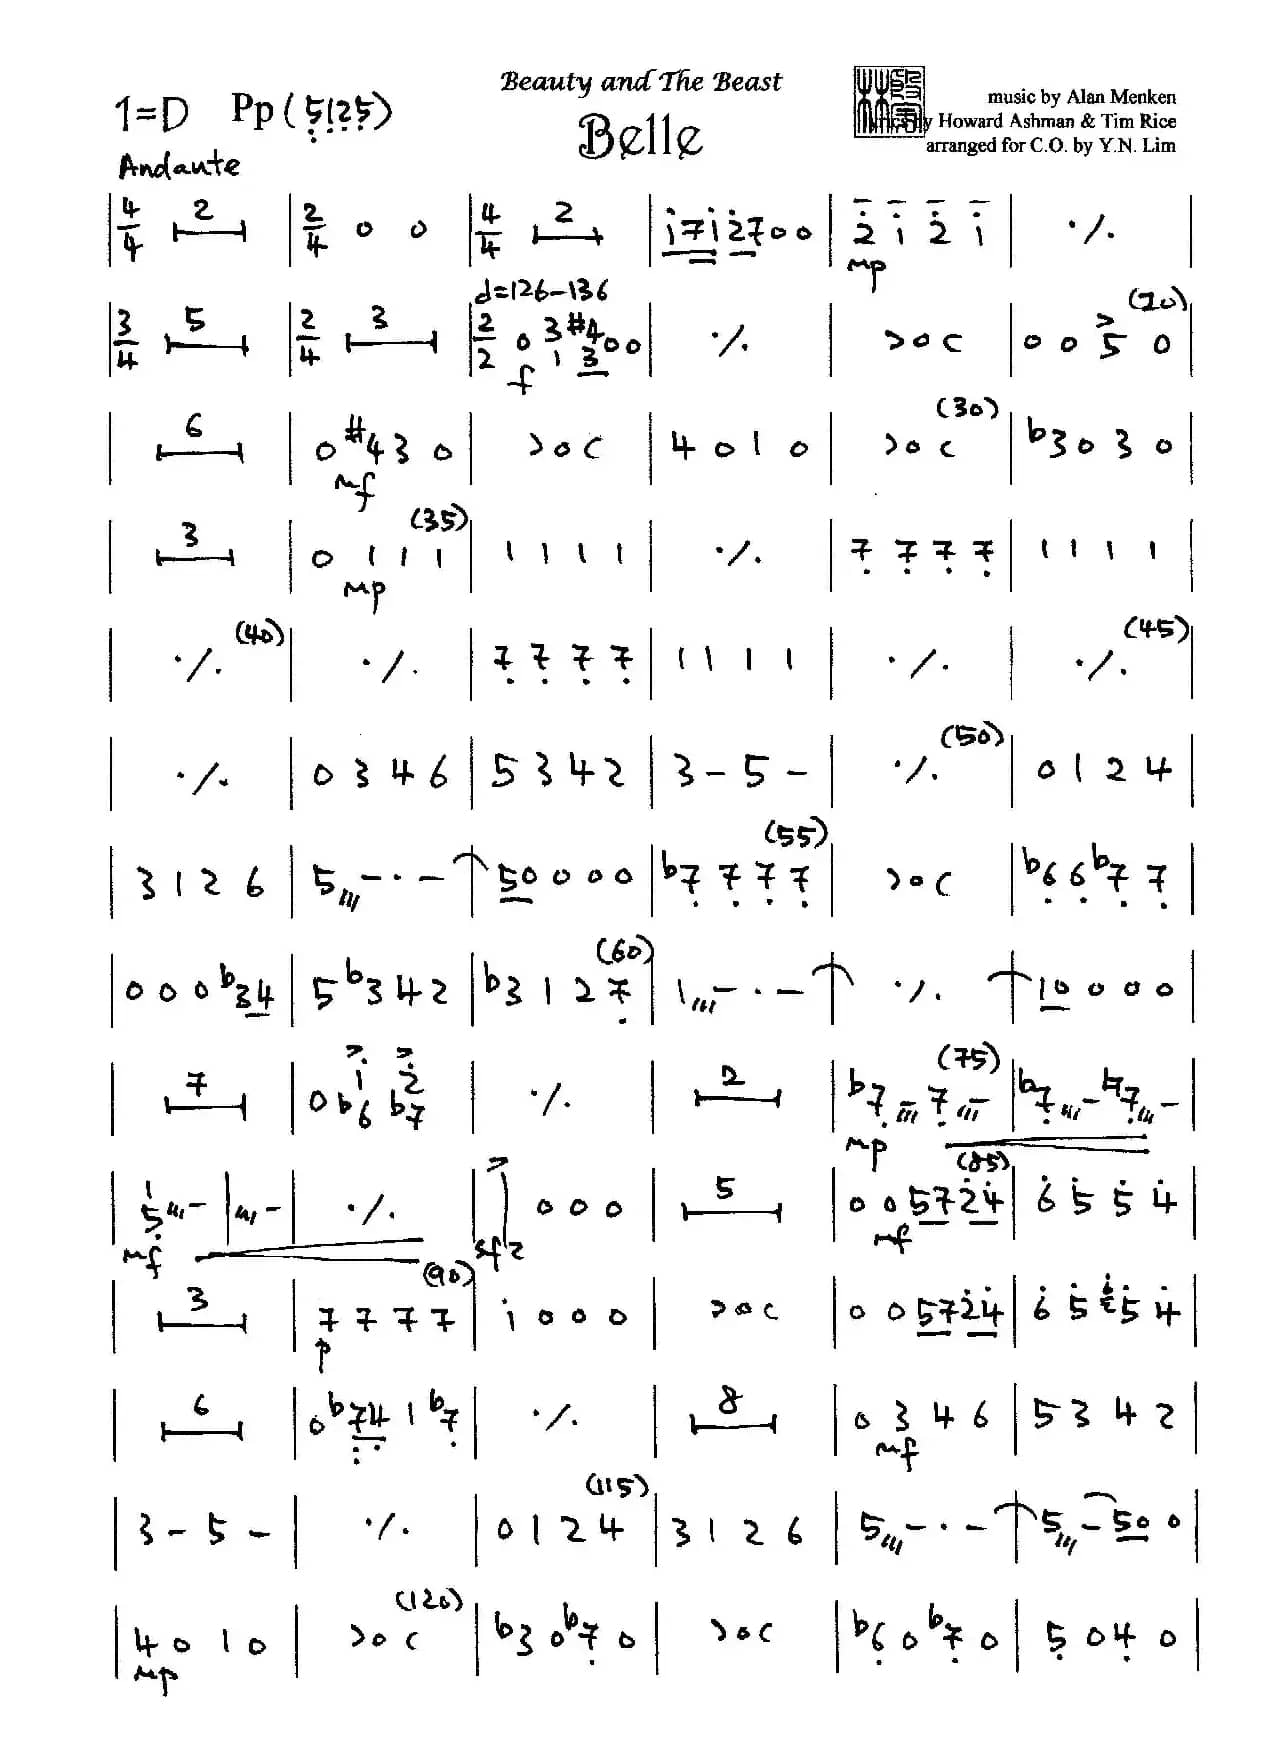 Beauty and The Beast
Belle
1=D Pp (5125)
music by Alan Menken
Howard Ashman & Tim Rice
arranged for C.O. by Y.N. Lim
Andante
| 4/4 2 | 2/4 0 0 | 4/4 2 | 1712700 | 2 1 2 1 | ·/. |
mp
d=126-136
(20)
| 3/4 5 | 2/4 3 | 2/2 0 3 #4 0 0 | ·/. | >0< | 0 0 5 0 |
1 3
f
(30)
| 6 | 0 #4 3 0 | >0< | 4 0 1 0 | >0< | b3 0 3 0 |
mf
(35)
| 3 | 0 1 1 1 | 1 1 1 1 | ·/. | 7 7 7 7 | 1 1 1 1 |
mp
(40) (45)
| ·/. | ·/. | 7 7 7 7 | 1 1 1 1 | ·/. | ·/. |
(50)
| ·/. | 0 3 4 6 | 5 3 4 2 | 3 - 5 - | ·/. | 0 1 2 4 |
(55)
| 3 1 2 6 | 5 - · - | 50 0 0 0 | b7 7 7 7 | >0< | b6 6 b7 7 |
(60)
| 0 0 0 b34 | 5 b3 4 2 | b3 1 2 7 | 1 - · - | ·/. | 10 0 0 0 |
(75)
| 7 | 0 1 2 | ·/. | 2 | b7 - 7 - | b7 - ♮7 - |
b6 b7
mp
(85)
| 1 - | - | ·/. | 0 0 0 | 5 | 0 0 57 24 | 6 5 5 4 |
5
mf sfz mf
(90)
| 3 | 7 7 7 7 | 1 0 0 0 | >0< | 0 0 57 24 | 6 5 5 4 |
p
| 6 | 0 b74 1 b7 | ·/. | 8 | 0 3 4 6 | 5 3 4 2 |
mf
(115)
| 3 - 5 - | ·/. | 0 1 2 4 | 3 1 2 6 | 5 - · - | 5 - 50 0 |
(120)
| 4 0 1 0 | >0< | b3 0 b7 0 | >0< | b6 0 b7 0 | 5 0 4 0 |
mp